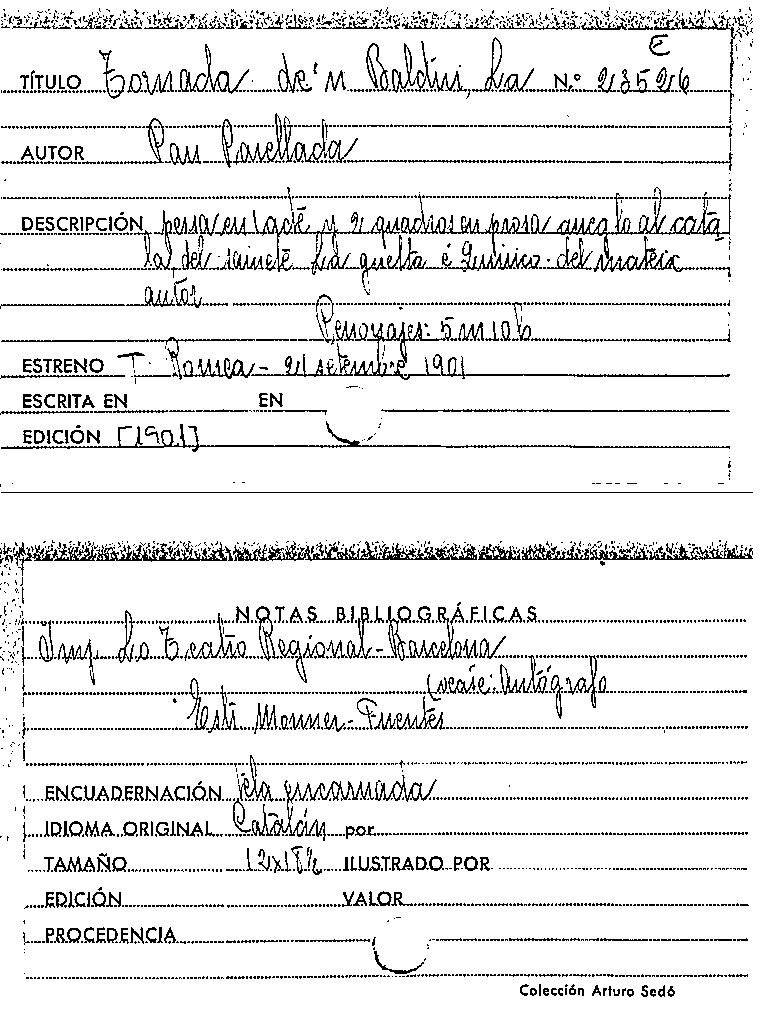 E
TÍTULO Tornada de'n Baldiri, La N.º 23526
AUTOR Pau Parellada
DESCRIPCIÓN pensa en 1 acte y 2 quadros en prosa aneglo al cata
la del sainete La guelta é Quirico del mateix
autor
Personajes: 5 m 10 h
ESTRENO T. Romea - 21 setembre 1901
ESCRITA EN EN
EDICIÓN [1901]
NOTAS BIBLIOGRÁFICAS
Imp Lo Teatro Regional - Barcelona
Vease: Autógrafo
Esti Monner - Fuentes
ENCUADERNACIÓN tela encarnada
IDIOMA ORIGINAL Catalán por
TAMAÑO 12x18½ ILUSTRADO POR
EDICIÓN VALOR
PROCEDENCIA
Colección Arturo Sedó